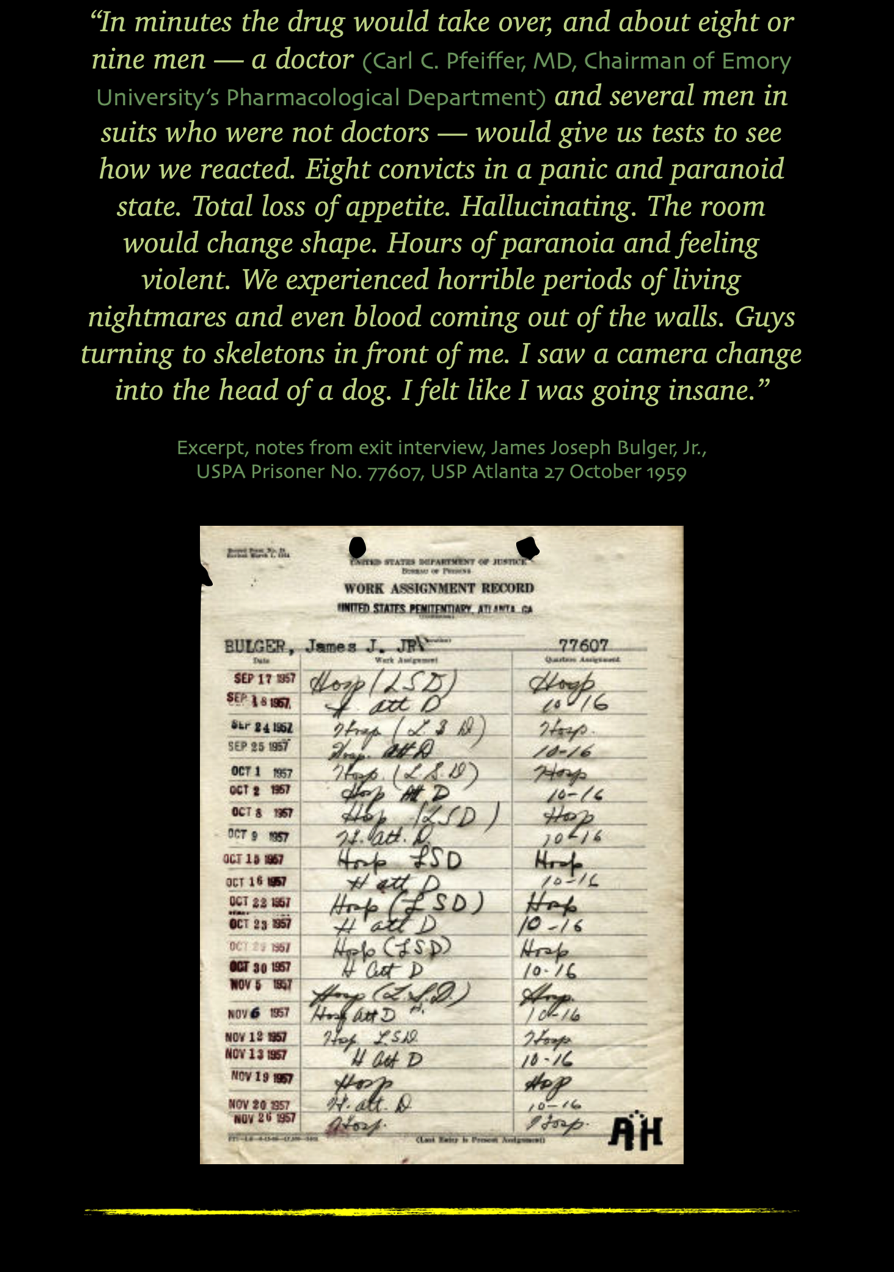 “In minutes the drug would take over, and about eight or
nine men — a doctor (Carl C. Pfeiffer, MD, Chairman of Emory
University’s Pharmacological Department) and several men in
suits who were not doctors — would give us tests to see
how we reacted. Eight convicts in a panic and paranoid
state. Total loss of appetite. Hallucinating. The room
would change shape. Hours of paranoia and feeling
violent. We experienced horrible periods of living
nightmares and even blood coming out of the walls. Guys
turning to skeletons in front of me. I saw a camera change
into the head of a dog. I felt like I was going insane.”
Excerpt, notes from exit interview, James Joseph Bulger, Jr.,
USPA Prisoner No. 77607, USP Atlanta 27 October 1959
UNITED STATES DEPARTMENT OF JUSTICE
Bureau of Prisons
WORK ASSIGNMENT RECORD
UNITED STATES PENITENTIARY, ATLANTA, GA
BULGER, James J. JR 77607
Date Work Assignment Quarters Assignment
SEP 17 1957 Hosp (LSD) Hosp
SEP 18 1957 att D 10-16
SEP 24 1957 Hosp (L S D) Hosp.
SEP 25 1957 Hosp. att D 10-16
OCT 1 1957 Hosp. (L.S.D) Hosp
OCT 2 1957 Hosp Att D 10-16
OCT 8 1957 Hosp (LSD) Hosp
OCT 9 1957 H. att. D. 10-16
OCT 15 1957 Hosp LSD Hosp
OCT 16 1957 H att D 10-16
OCT 22 1957 Hosp (LSD) Hosp
OCT 23 1957 H att D 10-16
OCT 29 1957 Hosp (LSD) Hosp
OCT 30 1957 H Att D 10-16
NOV 5 1957 Hosp (L.S.D.) Hosp.
NOV 6 1957 Hosp Att D 10-16
NOV 12 1957 Hosp LSD. Hosp
NOV 13 1957 H Att D 10-16
NOV 19 1957 Hosp Hosp
NOV 20 1957 H. att. D 10-16
NOV 26 1957 Hosp. Hosp.
(Last Entry is Present Assignment)
AH